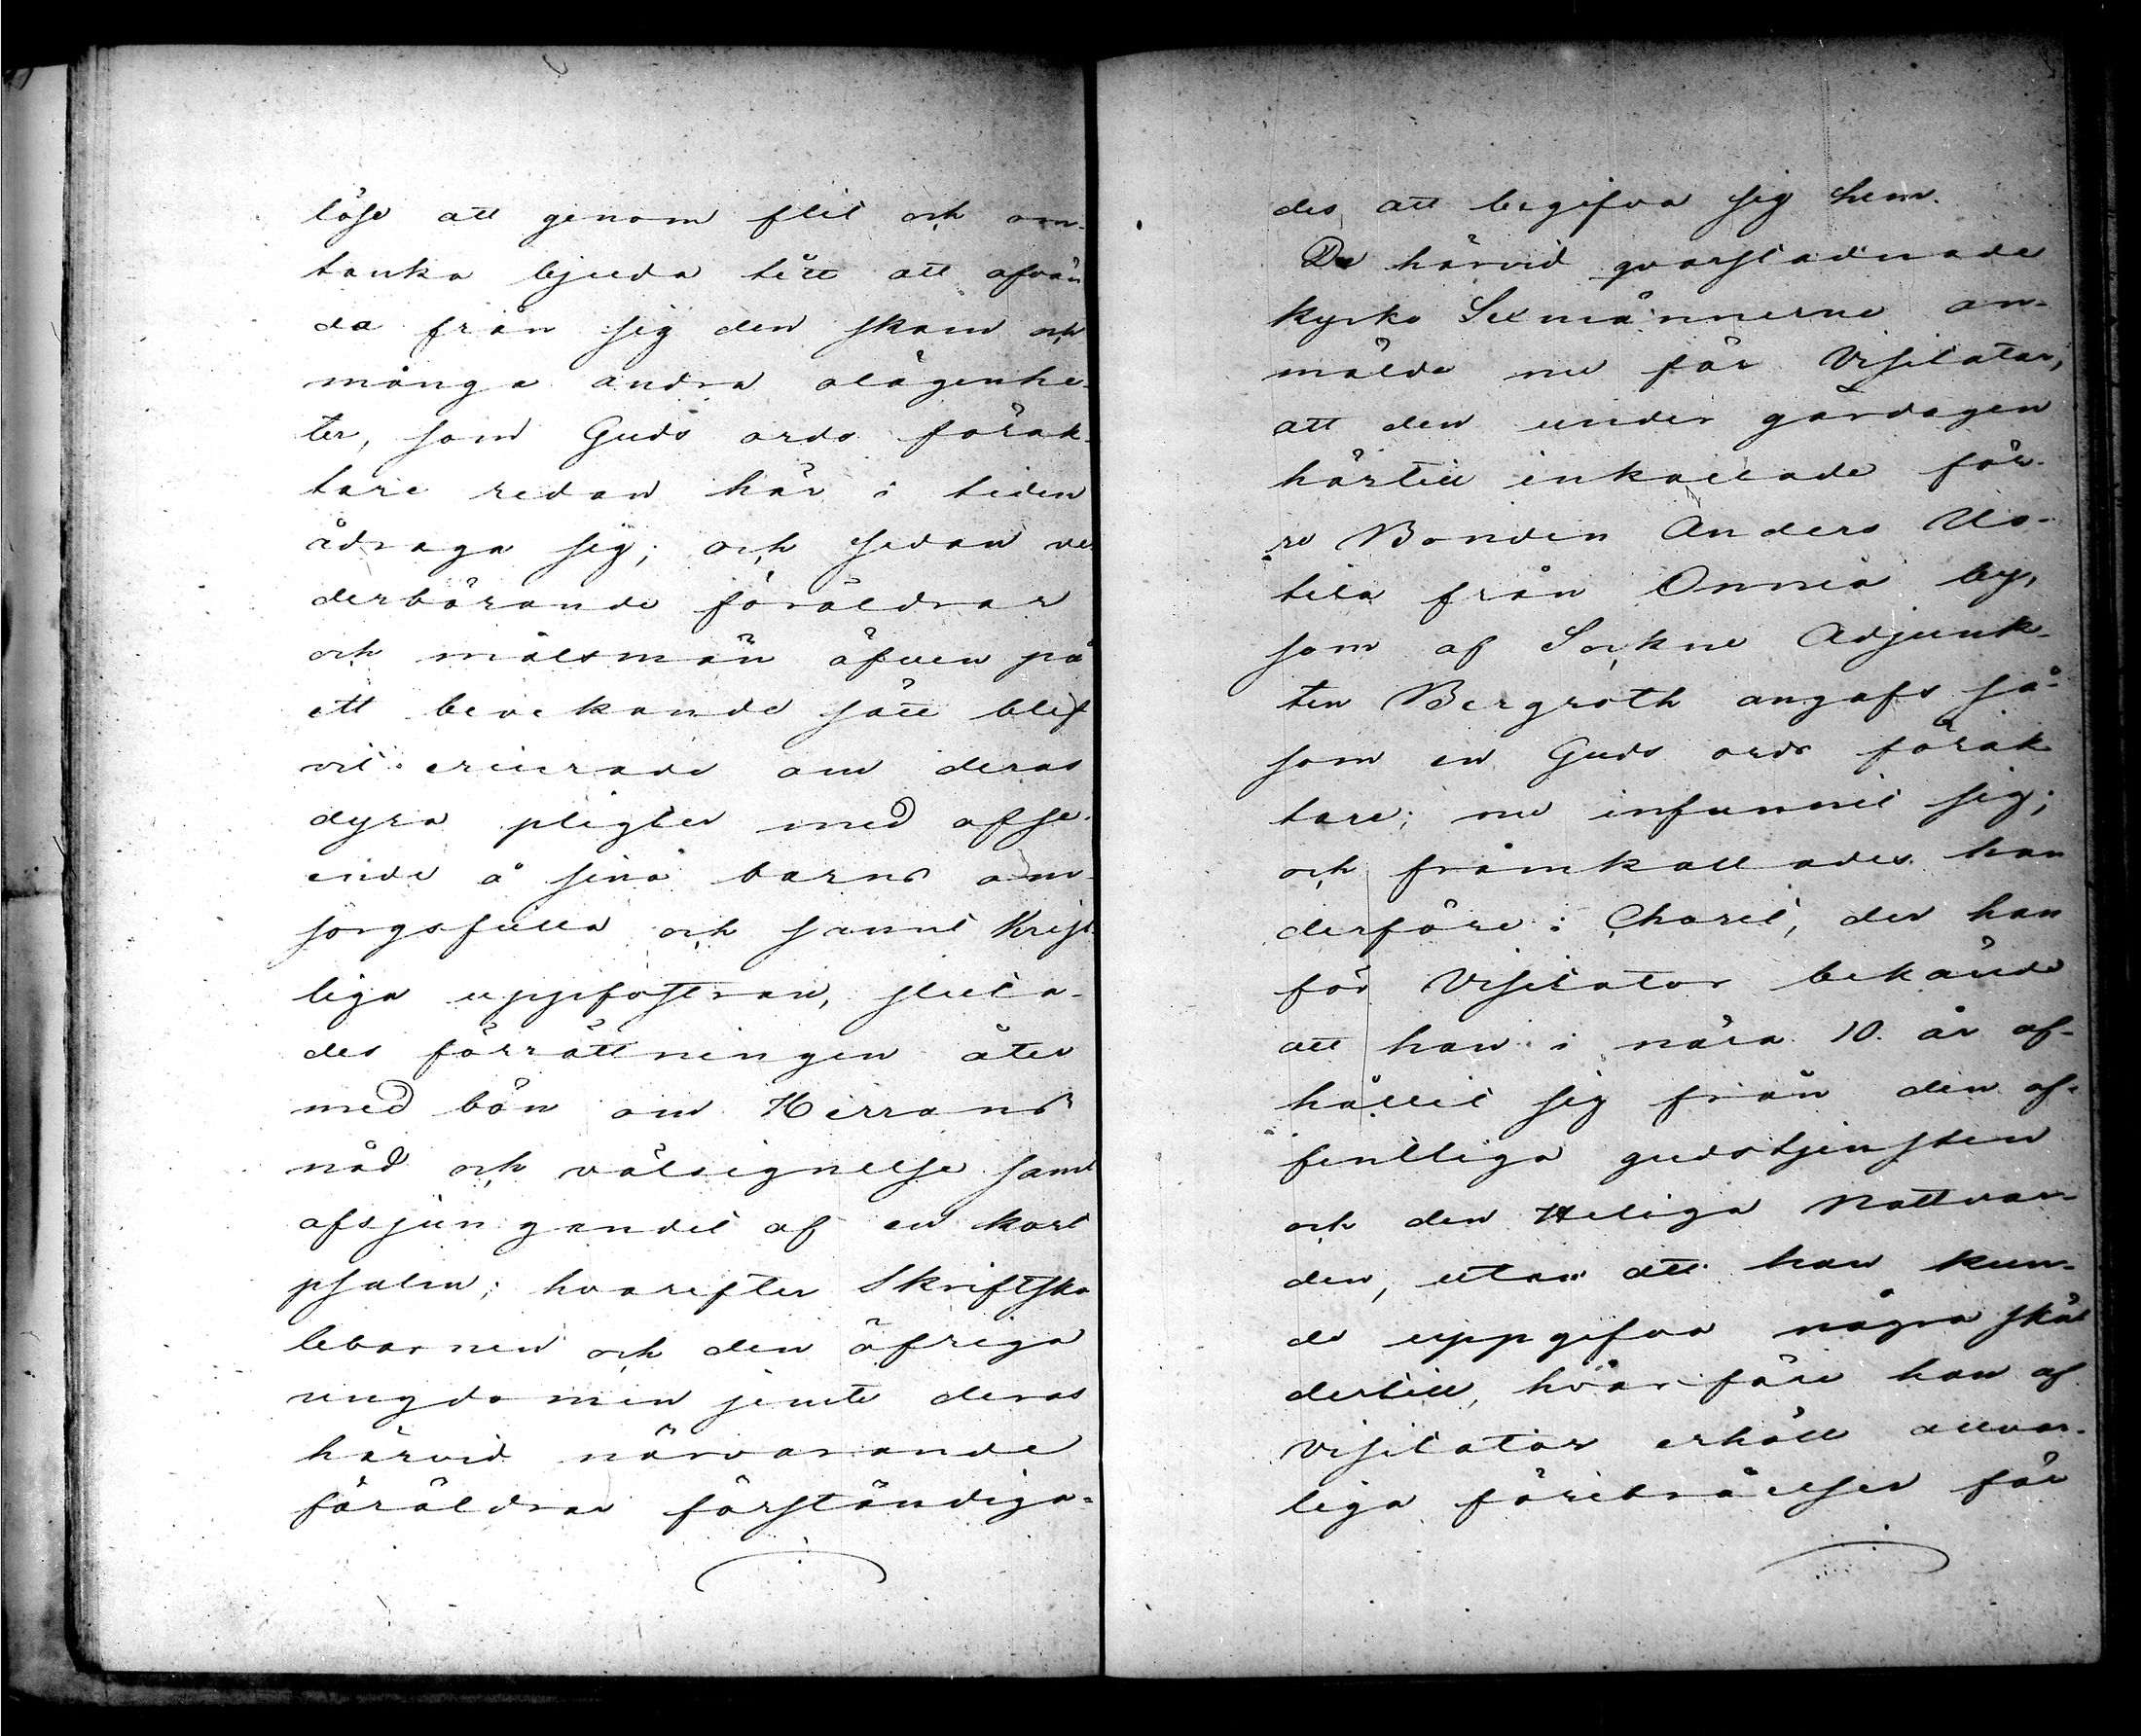 löse att genom flit och om-
tanka bjuda till att afvän
da från sig den skam och
många andra olägenhe-
ter, som Guds ords förak-
tare redan här i tiden
ådraga sig; och sedan ve-
derbörande föräldrar
och målsmän äfven på
ett bevekande sätt blif
vit erinrade om deras
dyra pligter med afse-
ende å sina barns om-
sorgsfulla och sannt Krist
liga uppfostran, sluta-
des förrättningen åter
med bön om Herrans
nåd och välsignelse samt
afsjungandet af en kort
psalm; hvarefter Skriftsko
lebarnen och den öfriga
ungdomen jemte deras
härvid närvarande
föräldrar förständiga-
des att begifva sig hem.
De härvid qvarstadnade
kyrko Sexmännerne an-
mälde nu för Visitator,
att den under gårdagen
härtill inkallade för-
re Bonden Anders Us-
tila från Onnia by,
som af Sockne Adjunk-
ten Bergroth angafs så-
som en Guds ords förak
tare; nu infunnit sig;
och framkallades han
derföre i Choret, der han
för Visitator bekände
att han i nära 10 år af-
hållit sig från den of-
fentliga gudstjensten
och den Heliga Nattvar-
den, utan att han kun-
de uppgifva några skäl
dertill, hvarföre han af
Visitator erhöll allvar-
liga förebråelser för